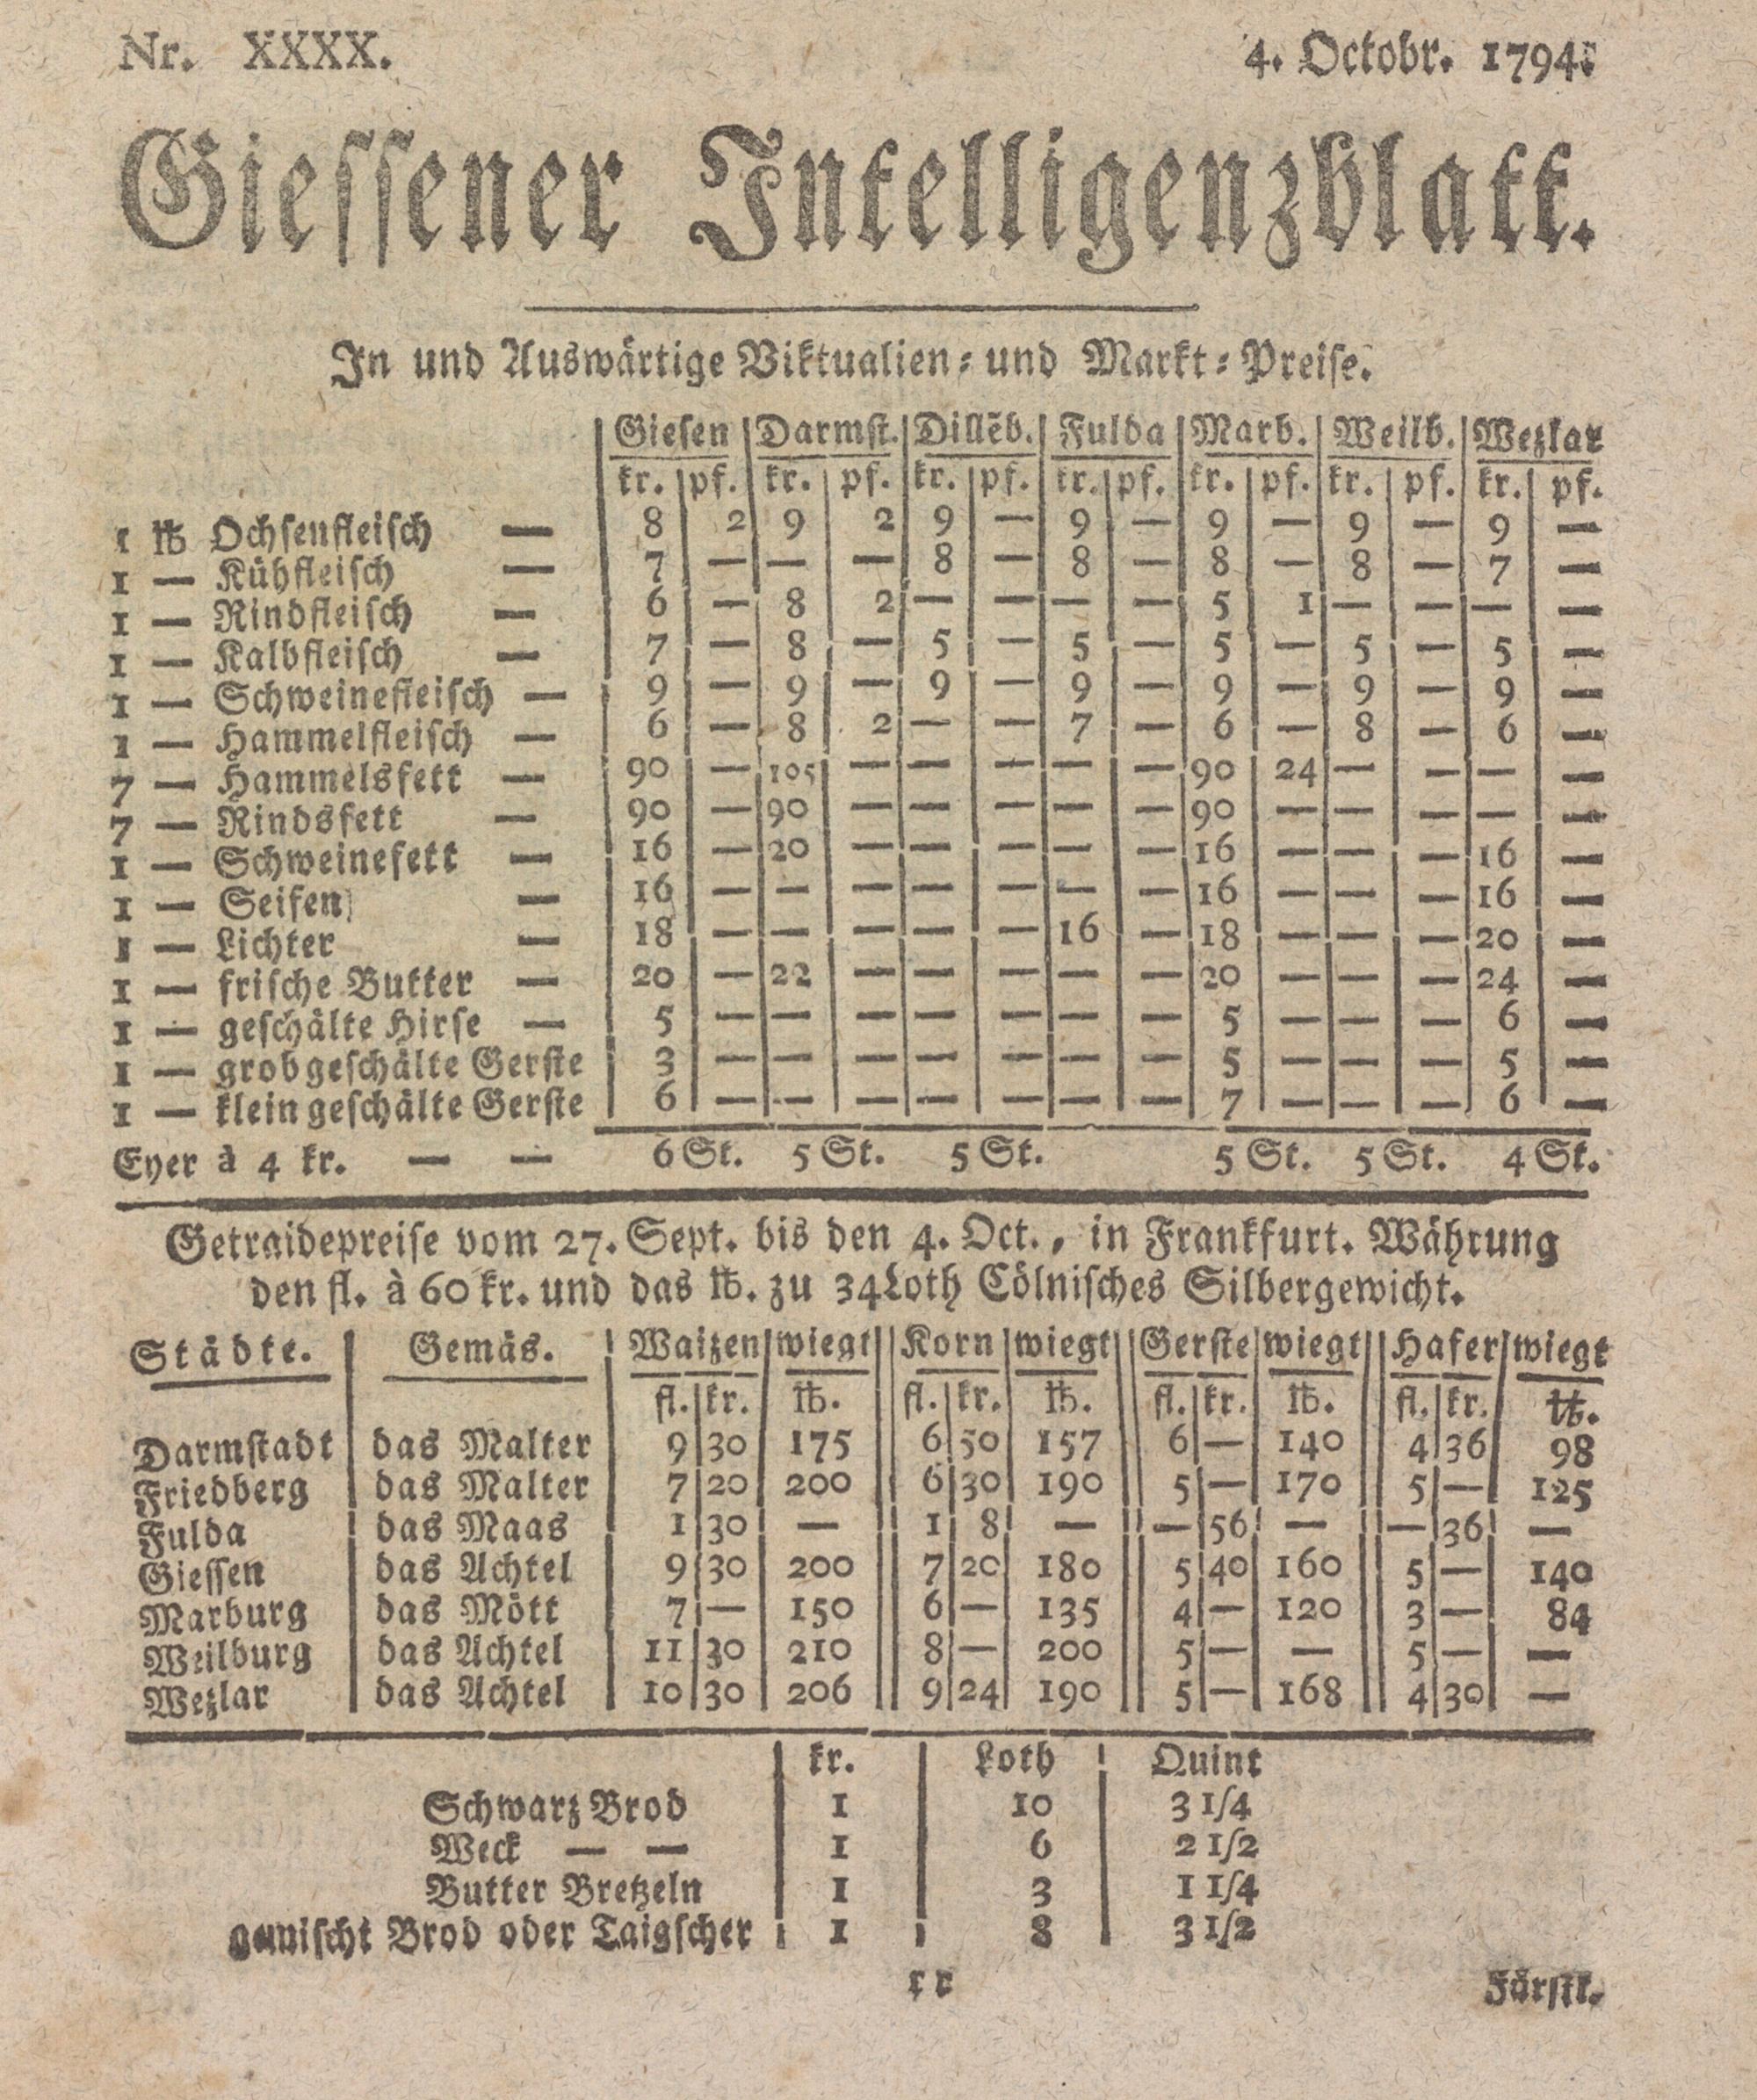 Nr. XXXX. 4. Octobr. 1794.
Giessener Intelligenzblatt.
In und Auswärtige Viktualien- und Markt-Preise.
Giesen Darmst. Dillēb. Fulda Marb. Weilb. Wezlar
kr. pf. kr. pf. kr. pf. kr. pf. kr. pf. kr. pf. kr. pf.
1 ℔ Ochsenfleisch — 8 2 9 2 9 — 9 — 9 — 9 — 9 —
1 — Kühfleisch — 7 — — — 8 — 8 — 8 — 8 — 7 —
1 — Rindfleisch — 6 — 8 2 — — — — 5 1 — — — —
1 — Kalbfleisch — 7 — 8 — 5 — 5 — 5 — 5 — 5 —
1 — Schweinefleisch — 9 — 9 — 9 — 9 — 9 — 9 — 9 —
1 — Hammelfleisch — 6 — 8 2 — — 7 — 6 — 8 — 6 —
7 — Hammelsfett — 90 — 105 — — — — — 90 24 — — — —
7 — Rindsfett — 90 — 90 — — — — — 90 — — — — —
1 — Schweinefett — 16 — 20 — — — — — 16 — — — 16 —
1 — Seifen — 16 — — — — — — — 16 — — — 16 —
1 — Lichter — 18 — — — — — 16 — 18 — — — 20 —
1 — frische Butter — 20 — 22 — — — — — 20 — — — 24 —
1 — geschälte Hirse — 5 — — — — — — — 5 — — — 6 —
1 — grob geschälte Gerste 3 — — — — — — — 5 — — — 5 —
1 — klein geschälte Gerste 6 — — — — — — — 7 — — — 6 —
Eyer à 4 kr. — — 6 St. 5 St. 5 St. 5 St. 5 St. 4 St.
Getraidepreise vom 27. Sept. bis den 4. Oct., in Frankfurt. Währung
den fl. à 60 kr. und das ℔. zu 34 Loth Cölnisches Silbergewicht.
Städte. Gemäs. Waizen wiegt Korn wiegt Gerste wiegt Hafer wiegt
fl. kr. ℔. fl. kr. ℔. fl. kr. ℔. fl. kr. ℔.
Darmstadt das Malter 9 30 175 6 50 157 6 — 140 4 36 98
Friedberg das Malter 7 20 200 6 30 190 5 — 170 5 — 125
Fulda das Maas 1 30 — 1 8 — — 56 — — 36 —
Giessen das Achtel 9 30 200 7 20 180 5 40 160 5 — 140
Marburg das Mött 7 — 150 6 — 135 4 — 120 3 — 84
Weilburg das Achtel 11 30 210 8 — 200 5 — — 5 — —
Wezlar das Achtel 10 30 206 9 24 190 5 — 168 4 30 —
kr. Loth Quint
Schwarz Brod 1 10 3 1/4
Weck — — 1 6 2 1/2
Butter Bretzeln 1 3 1 1/4
gemischt Brod oder Taigscher 1 8 3 1/2
r r Fürstl.